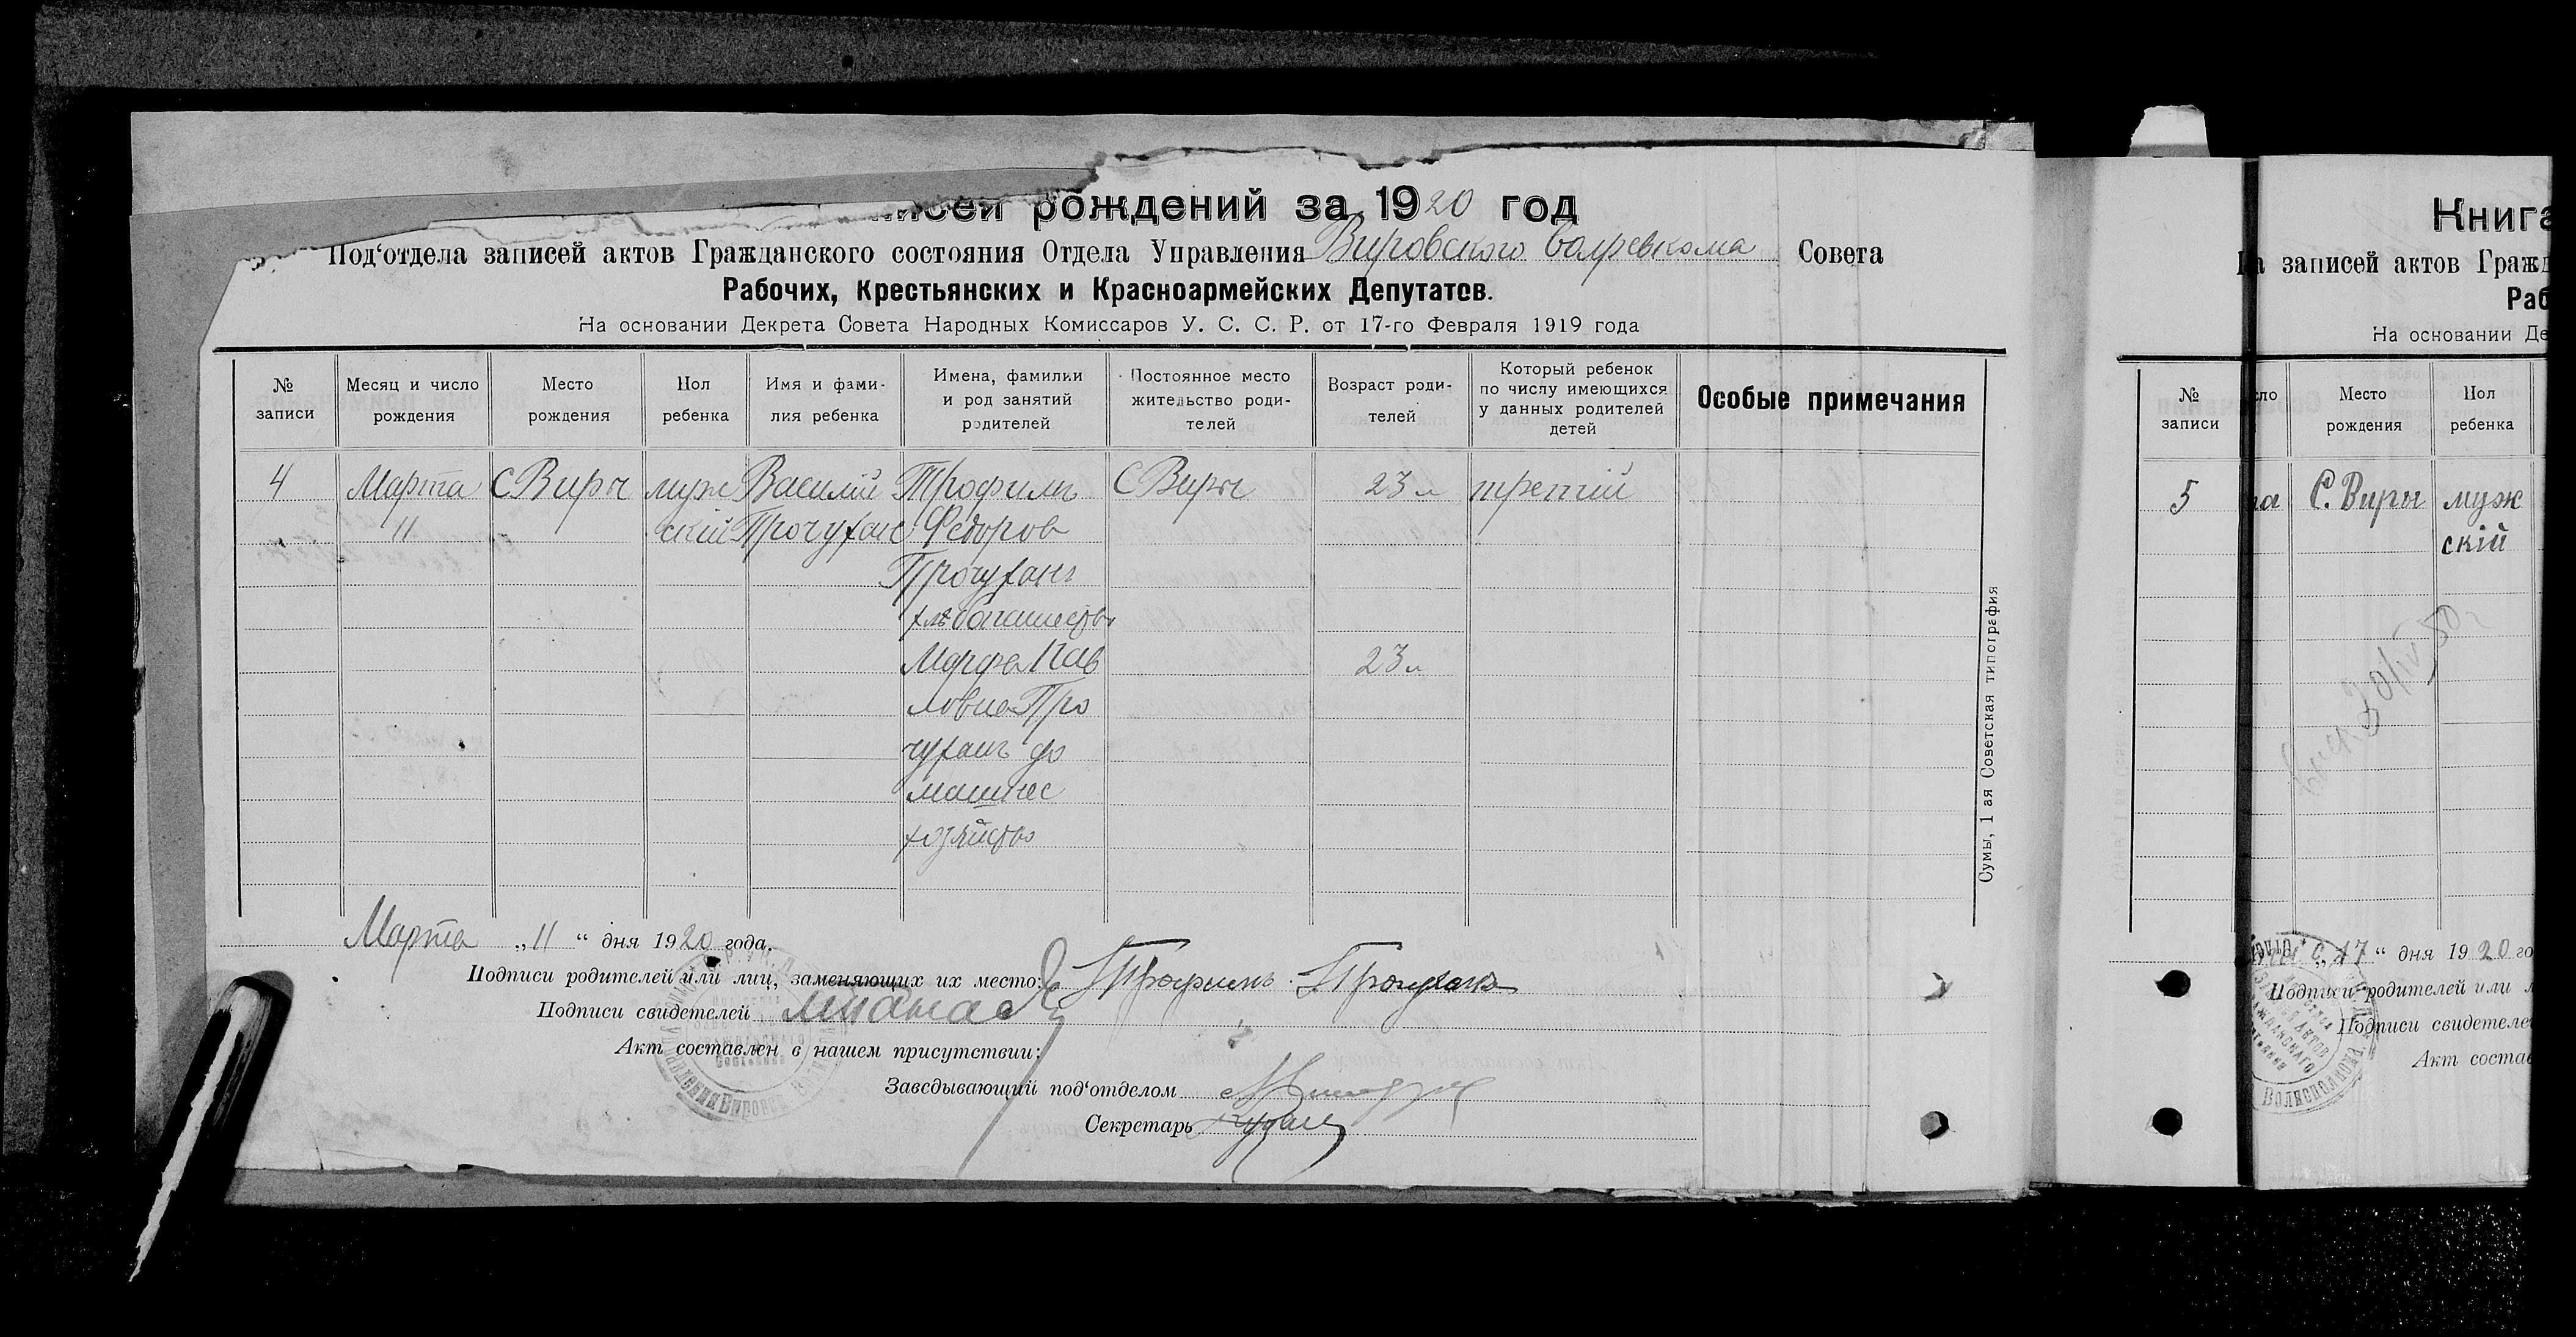 рождений за 1920 год
Под'отдела записей актов Гражданского состояния Отдела Управления Вировского Волревкома Совета
Рабочих, Крестьянских и Красноармейских Депутатов.
На основании Декрета Совета Народных Комиссаров У. С. С. Р. от 17-го Февраля 1919 года
№ записи
Месяц и число рождения
Место рождения
Пол ребенка
Имя и фами-лия ребенка
Имена, фамилии и род занятий родителей
Постоянное место жительство роди-телей
Возраст роди-телей
Который ребенок по числу имеющихся у данных родителей детей
Особые примечания
4 Марта С Виры муж Василий Трофим С Виры 23 л третий
11 ский Прочухан Федоров
Прочухан
хлебопашество
Марфа Пав 23 л
ловна Про
чухан до
машнее
хозяйство
Сумы, 1 ая Советская типография
Марта „11“ дня 1920 года.
Подписи родителей или лиц, заменяющих их место: Трофим Прочухан
Подписи свидетелей
Акт составлен в нашем присутствии:
Заведывающий под'отделом
Секретарь
Книга
записей актов Гражд
Раб
На основании Де
№ записи
ло
Место рождения
Пол ребенка
5 та С. Виры муж
скій
„17“ дня 1920 го
Подписи родителей или л
Подписи свидетеле
Акт состав